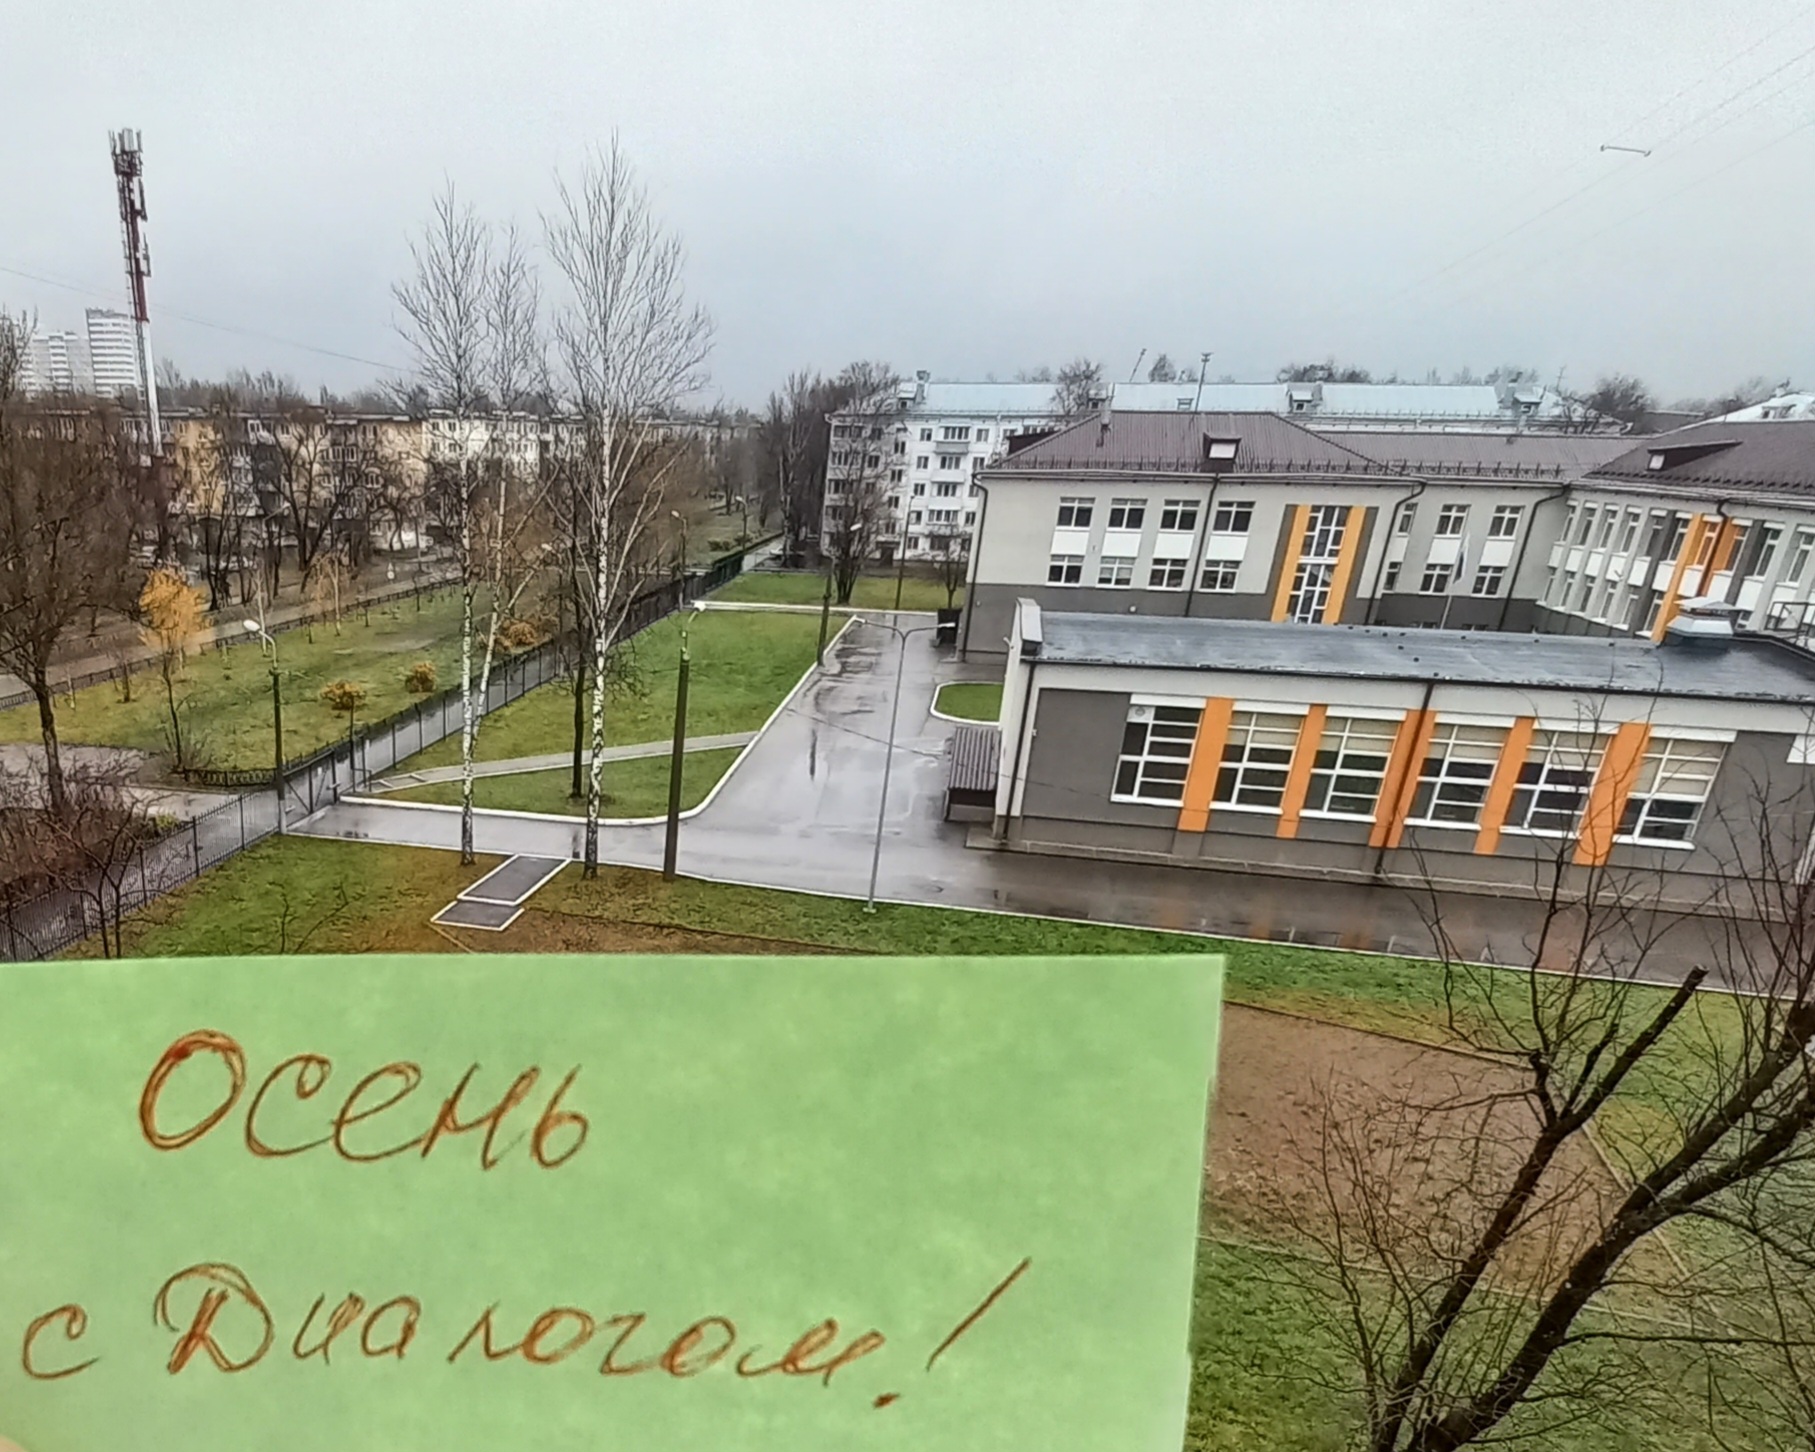 Осень
с Диалогом!